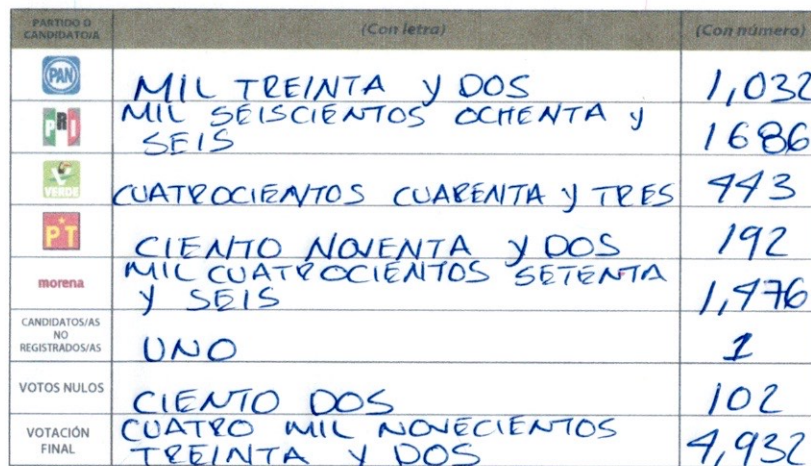 PARTIDO O CANDIDATO/A (Con letra) (Con número)
PAN MIL TREINTA Y DOS 1,032
PRI MIL SEISCIENTOS OCHENTA Y SEIS 1686
VERDE CUATROCIENTOS CUARENTA Y TRES 443
PT CIENTO NOVENTA Y DOS 192
morena MIL CUATROCIENTOS SETENTA Y SEIS 1,476
CANDIDATOS/AS NO REGISTRADOS/AS UNO 1
VOTOS NULOS CIENTO DOS 102
VOTACIÓN FINAL CUATRO MIL NOVECIENTOS TREINTA Y DOS 4,932